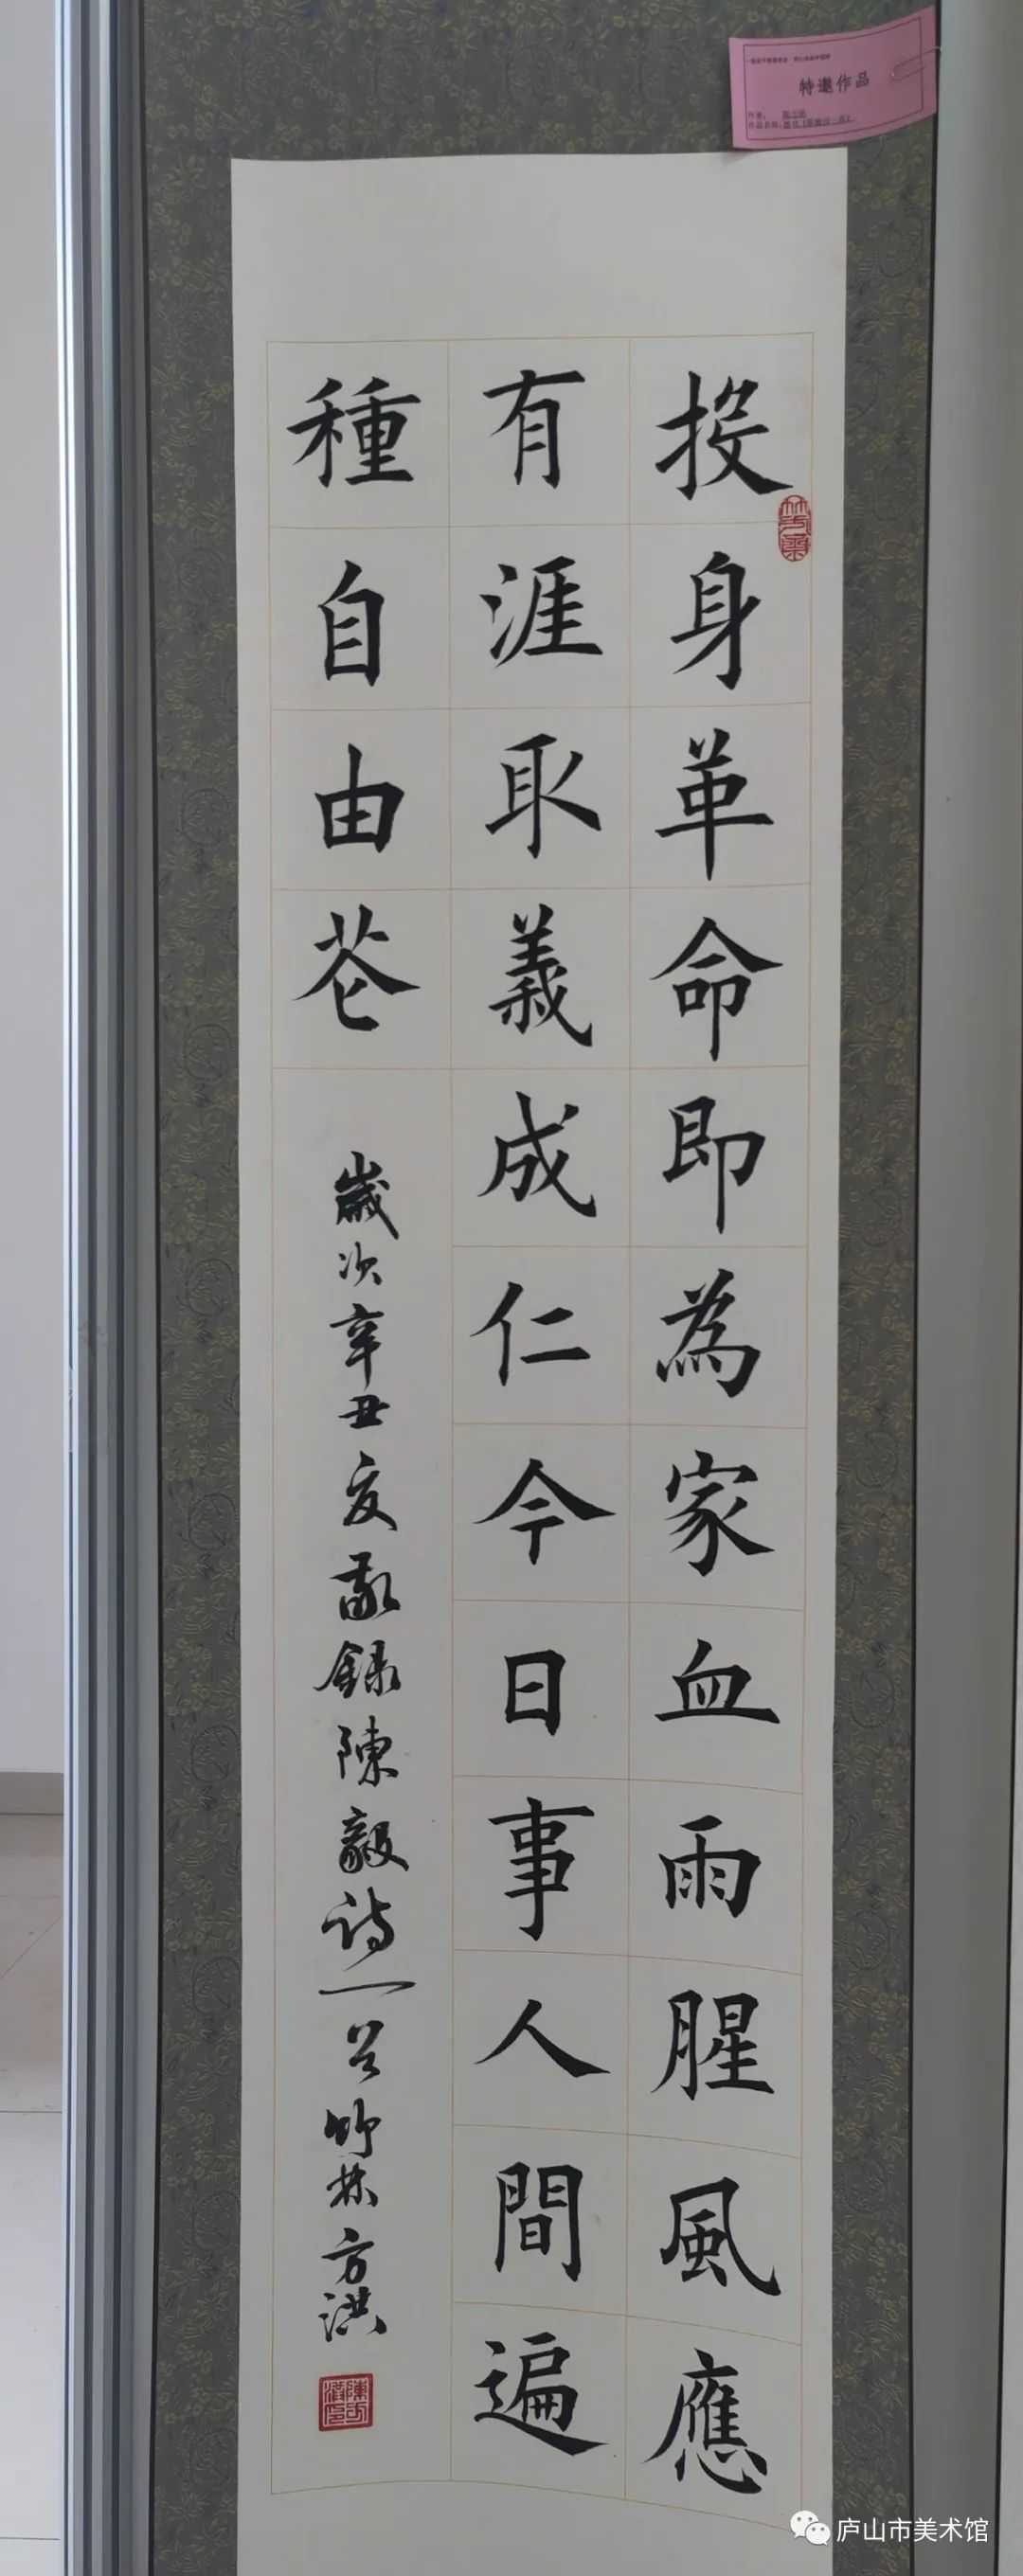 特邀作品
投身革命即為家血雨腥風應
有涯取義成仁今日事人間遍
種自由花
歲次辛丑夏敬錄陳毅詩一首竹林方洪
庐山市美术馆